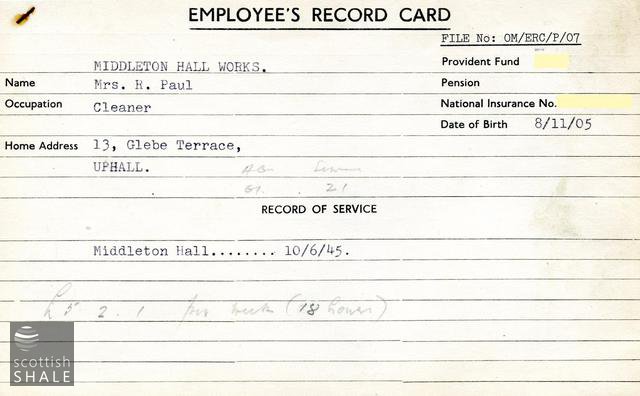 EMPLOYEE'S RECORD CARD
FILE No: OM/ERC/P/07
MIDDLETON HALL WORKS.
Provident Fund
Name Mrs. R. Paul
Pension
Occupation Cleaner
National Insurance No.
Date of Birth 8/11/05
Home Address 13, Glebe Terrace,
UPHALL.
Age Service
61. 21
RECORD OF SERVICE
Middleton Hall........ 10/6/45.
£5 2. 1 per week (18 hours)
scottish
SHALE